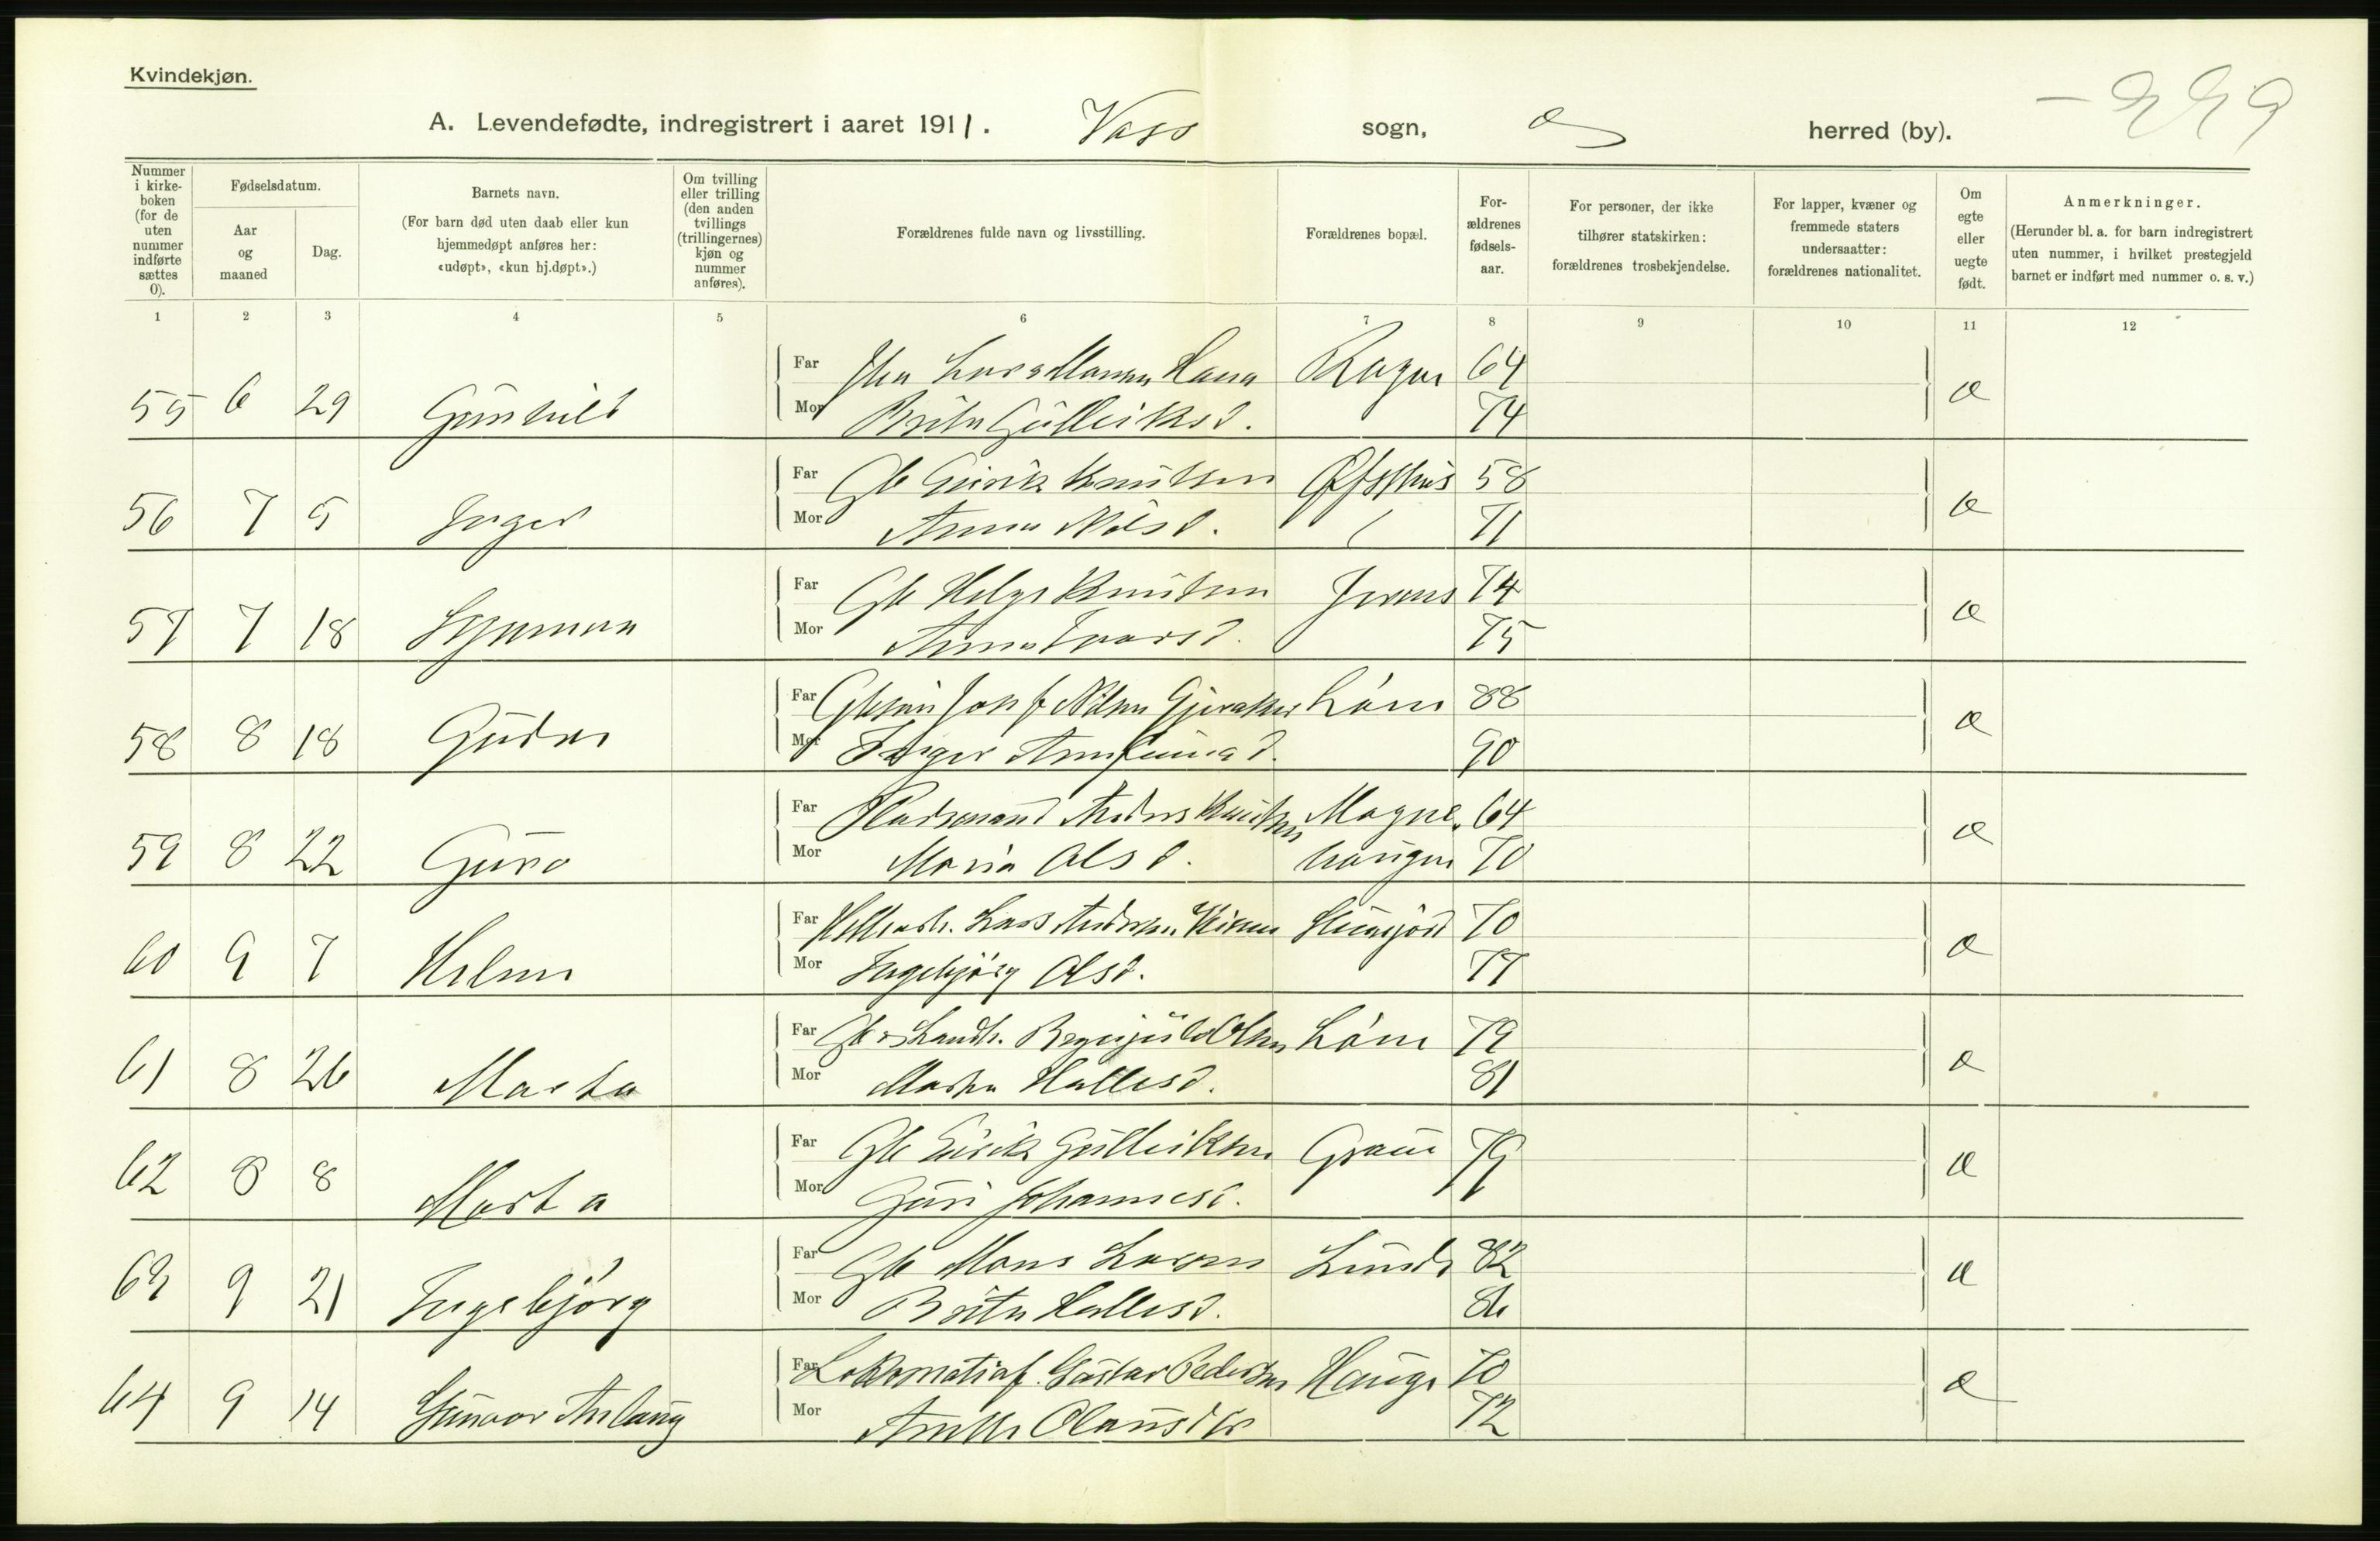 Kvindekjøn.
A. Levendefødte, indregistrert i aaret 1911. Voss sogn, herred (by). 229
Nummer i kirkeboken (for de uten nummer indførte sættes 0).
Fødselsdatum.
Aar og maaned
Dag.
Barnets navn.
(For barn død uten daab eller kun hjemmedøpt anføres her: «udøpt», «kun hj.døpt».)
Om tvilling eller trilling (den anden tvillings (trillingernes) kjøn og nummer anføres).
Forældrenes fulde navn og livsstilling.
Forældrenes bopæl.
Forældrenes fødselsaar.
For personer, der ikke tilhører statskirken: forældrenes trosbekjendelse.
For lapper, kvæner og fremmede staters undersaatter: forældrenes nationalitet.
Om egte eller uegte født.
Anmerkninger.
(Herunder bl. a. for barn indregistrert uten nummer, i hvilket prestegjeld barnet er indført med nummer o. s. v.)
1 2 3 4 5 6 7 8 9 10 11 12
Far Lars Monsen 64
55 6 29 Gunhild Mor Brita Gulleiksd. 74 æ
Far Gb Eirik Knutsen 58
56 7 5 Inger Mor Anna Nilsd. 71 æ
Far Gb Helge Knutsen 74
57 7 18 Mor Anna Ivarsd. 75 æ
Far Nilsen Gjeraker Løne 88
58 8 18 Mor Inger 90 æ
Far Anders Knutsen Magne- 64
59 8 22 Guro Mor Maria Olsd. haugen 70 æ
Far Lars Andersen 70
60 9 7 Helene Mor Ingebjørg Olsd. 77 æ
Far Gb & Landh. Brynjulv Olsen Løne 79
61 8 26 Marta Mor Marta Hallesd. 81 æ
Far Gb Eirik Gulleiksen 79
62 8 8 Marta Mor Guri Johannesd. æ
Far Gb Mons Larsen Lunde 82
63 9 21 Ingebjørg Mor Brita Hallesd. 86 æ
Far Lokomotivf. Gustav Pedersen Hauge 70
64 9 14 Gunvor Aslaug Mor 72 æ